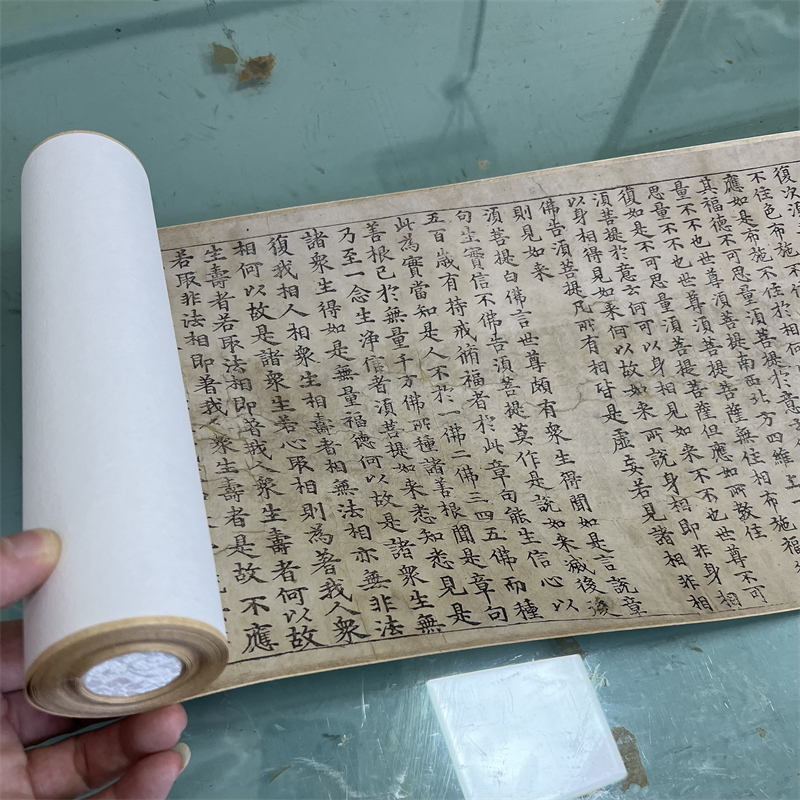 復次湏
不住色布施不住
應如是布施不住於相何
其福德不可思量湏菩提於意
量不不也世尊湏菩提南西北方四維上
思量不不也世尊湏菩提菩薩無住相布施福
復如是不可思量湏菩提菩薩但應如所教住
湏菩提於意云何可以身相見如来不不也世尊不可
以身相得見如来何以故如来所說身相即非身相
佛告湏菩提凡所有相皆是虛妄若見諸相非相
則見如来
湏菩提白佛言世尊頗有衆生得聞如是言說章
句生實信不佛告湏菩提莫作是說如来滅後後
五百歲有持戒脩福者於此章句能生信心以
此為實當知是人不於一佛二佛三四五佛而種
善根已於無量千万佛所種諸善根聞是章句
乃至一念生淨信者湏菩提如来悉知悉見是
諸衆生得如是無量福德何以故是諸衆生無
復我相人相衆生相壽者相無法相亦無非法
相何以故是諸衆生若心取相則為著我人衆
生壽者若取法相即著我人衆生壽者何以故
若取非法相即著我人衆生壽者是故不應